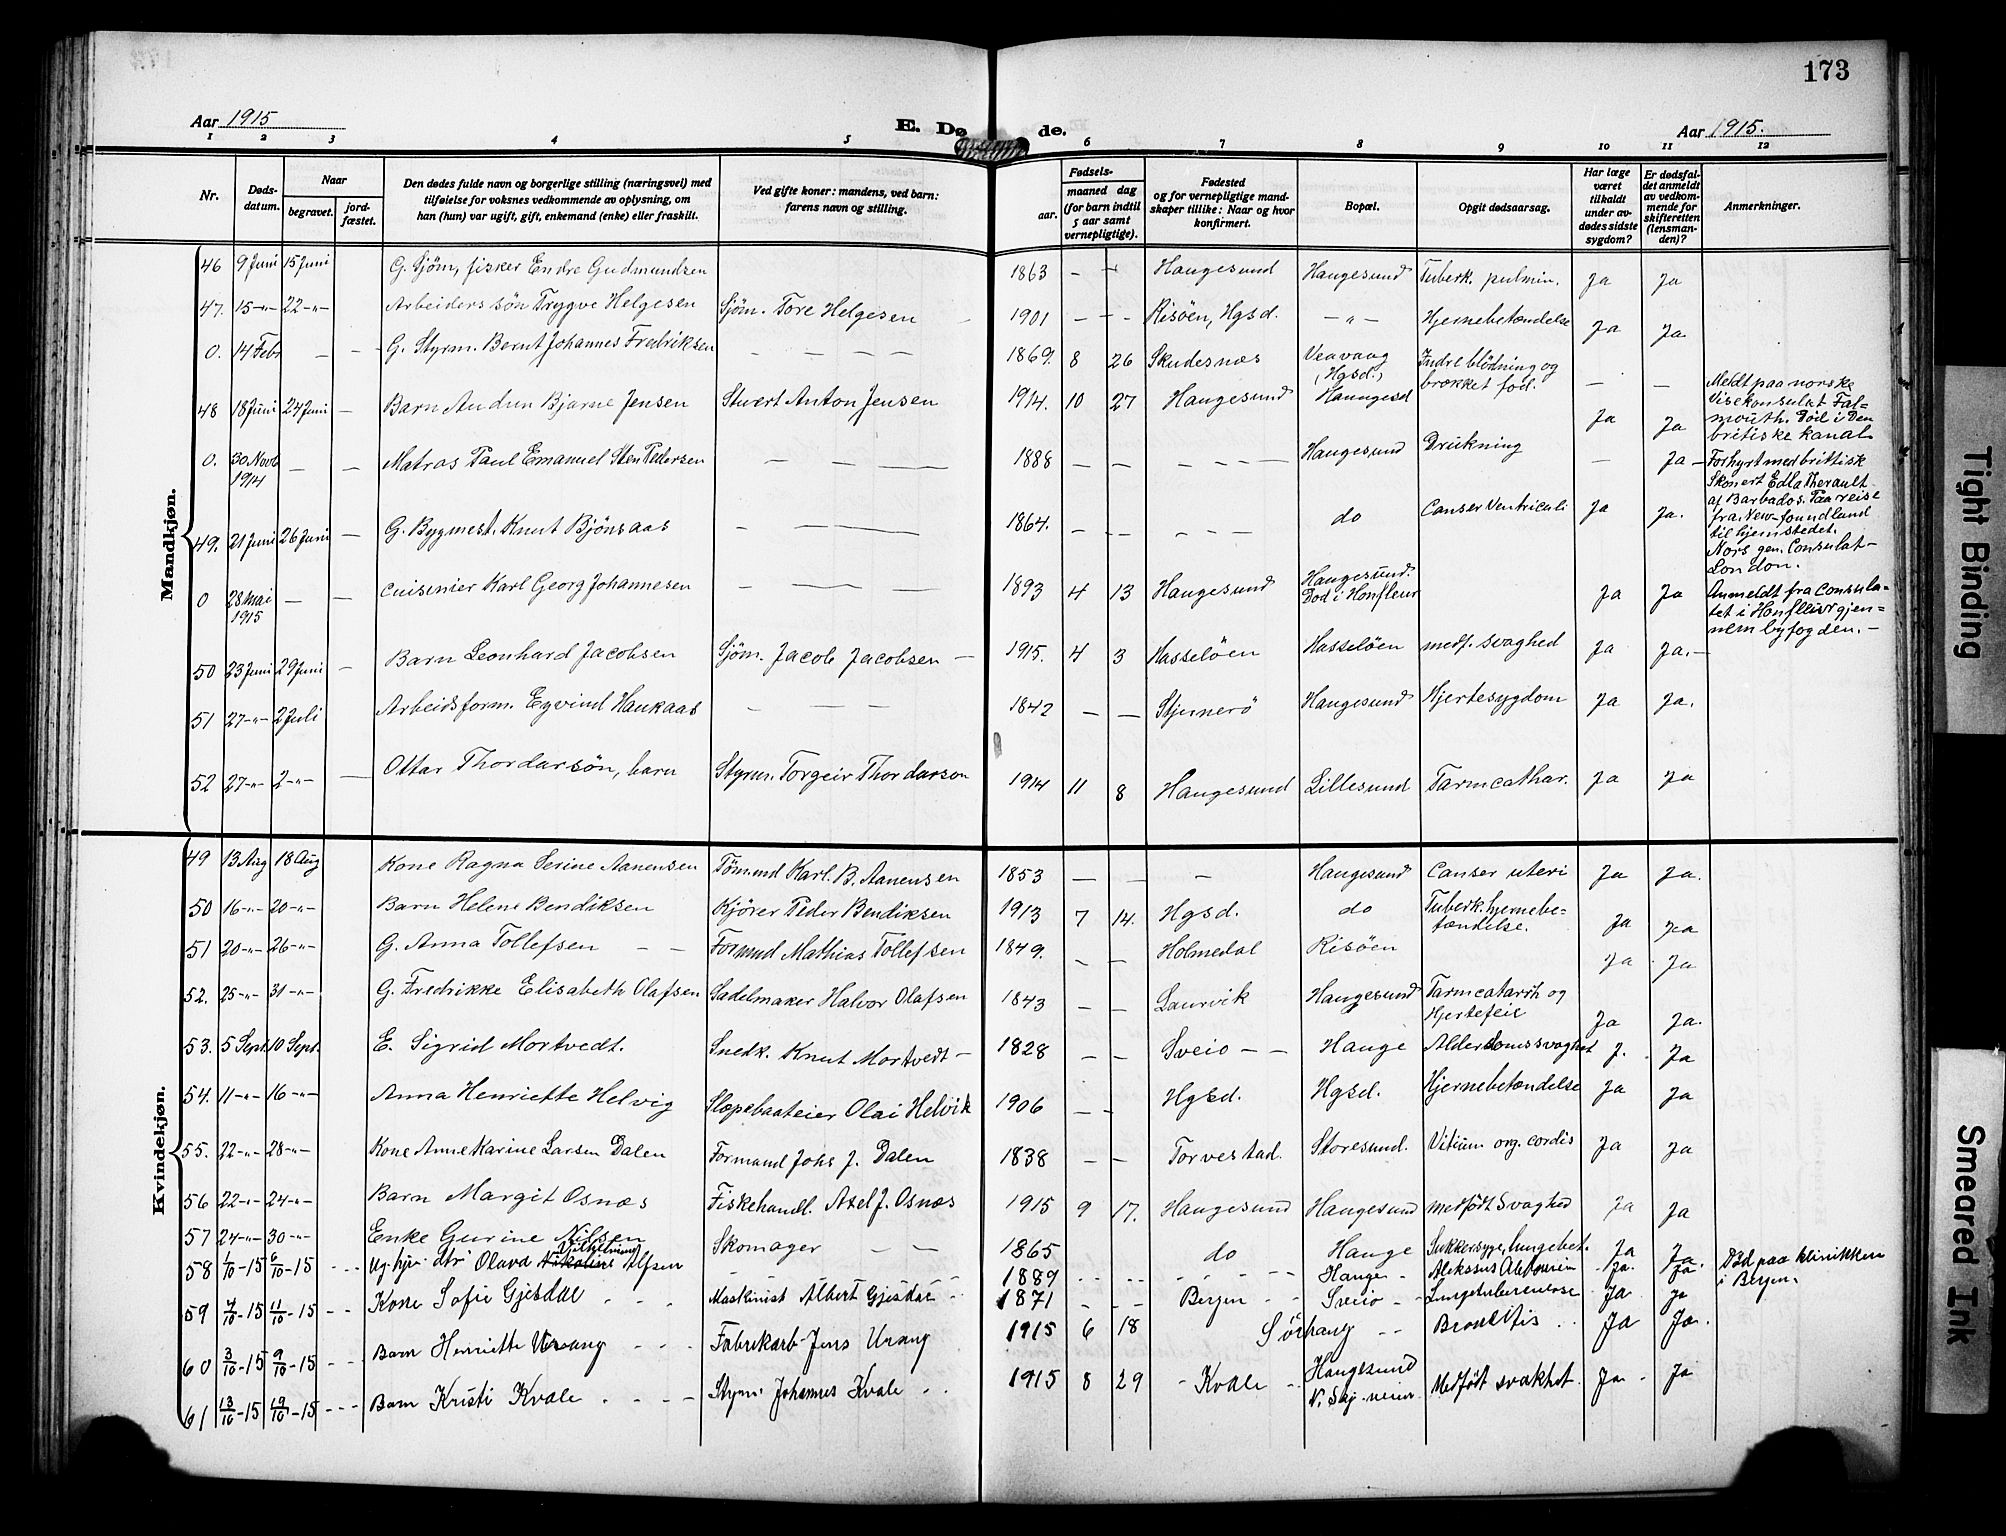 173
Aar 1915
E. Dø de.
Aar 1915.
1 2 3 4 5 6 7 8 9 10 11 12
Nr.
Døds-datum.
Naar
begravet.
jord-fæstet.
Den dødes fulde navn og borgerlige stilling (næringsvei) med
tilføielse for voksnes vedkommende av oplysning, om
han (hun) var ugift, gift, enkemand (enke) eller fraskilt.
Ved gifte koner: mandens, ved barn:
farens navn og stilling.
aar.
Fødsels-
maaned dag
(for barn indtil
5 aar samt
vernepligtige).
Fødested
og for vernepligtige mand-
skaper tillike: Naar og hvor
konfirmert.
Bopæl.
Opgit dødsaarsag.
Har læge
været
tilkaldt
under av-
dødes sidste
sygdom?
Er dødsfal-
det anmeldt
av vedkom-
mende for
skifteretten
(lensman-
den)?
Anmerkninger.
Mandkjøn.
46 9 Juni 15 Juni G. Sjøm, fisker Endre Gudmundsen 1863 — — Haugesund Haugesund Tuberk. pulmin. Ja Ja
47. 15 -"- 22 -"- Arbeiders søn Trygve Helgesen Sjøm. Tore Helgesen 1901 — — - Risøen, Hgsd. -"- Hjernebetændelse Ja Ja
0. 14 Febr — — G. Styrm. Bernt Johannes Fredriksen — — — — 1869. 8 26 Skudesnæs Veavaag (Hgsd.) Indre blödning og brækket fod. — —
Meldt paa norske
Visekonsulat Fal-
mouth. Död i Den
britiske kanal.
48 18 Juni 24 Juni — Barn Audun Bjarne Jensen Stuert Anton Jensen 1914. 10 27 Haugesund Haugesd Ja Ja
0. 30 Novb 1914 — — Matros Paul Emanuel Sten Pedersen — — — 1888 — — - - - — Haugesund Drukning — Ja -
Forhyrt med brittisk
Skonert Edla Therault
af Barbados. Paa reise
fra New-foundland
til hjemstedet.
Nors gen. Consulat-
London.
49. 21 Juni 26 Juni — G. Bygmest. Knut Bjönsaas - — — 1864. — — - - — do Canser Ventriculi Ja Ja.
0 28 Mai 1915 — — Cuisinier Karl Georg Johannesen - — — 1893 4 13 Haugesund Haugesund. Död i Honfleur Ja Ja
Anmeldt fra Consula-
tet i Honfleur gjen-
nem byfogden. -
50 23 Juni 29 Juni — Barn Leonhard Jacobsen Sjöm. Jacob Jacobsen — 1915. 4 3 Hasselöen Hasselöen medf. svaghed Ja Ja. -
51 27 -"- 2 Juli Arbeidsform. Eyvind Haukaas — — — 1842 — — Stjernerö Haugesund Hjertesygdom Ja Ja.
52 27 -"- 2 -"- — Ottar Thordarsön, barn Styrm. Torgeir Thordarson 1914 11 8 Haugesund Lillesund Tarmcathar. Ja Ja
Kvindekjøn.
49 13 Aug 18 Aug Kone Ragna Serine Aanensen Tömmd Karl. B. Aanensen 1853 — — - Haugesund Canser uteri Ja Ja.
50 16 -"- 20 -"- Barn Helene Bendiksen Kjörer Peder Bendiksen 1913 7 14. Hgsd. do Tuberk. hjernebe-tændelse. Ja Ja
51 20 -"- 26 -"- G. Anna Tollefsen — — Formnd Mathias Tollefsen 1849. — — Holmedal Risöen Ja Ja
52. 25 -"- 31 -"- G. Fredrikke Elisabeth Olafsen Sadelmaker Halvor Olafsen 1843 — — Laurvik Haugesund Tarmcatarrh og Hjertefeil Ja Ja.
53. 5 Sept. 10 Sept. E. Sigrid Mortvedt. Snedk. Knut Mortvedt — 1828 — — Sveio — — Hauge Alderdomssvaghet J. Ja
54. 11 -"- 16 -"- Anna Henriette Helvig Slæpebaateier Olai Helvik 1906 — — Hgsd. Hgsd. Hjernebetændelse Ja Ja
55. 22 -"- 28 -"- Kone Anne Karine Larsen Dalen Formand Johs J. Dalen 1838 — — Torvestad. Storesund. Vitium org. cordis Ja Ja
56 22 -"- 24 -"- Barn Margit Osnæs Fiskehandl. Axel J. Osnæs 1915 9 17. Haugesund Haugesund medfödt Svaghed Ja Ja
57 24 -"- 30 -"- Enke Gurine Nilsen Skomager — — 1865 do Hauge Sukkersyge, lungebet. Ja Ja.
58 1/10 - 15 6/10 - 15 - - - Ug. Olava Nikoline Vilhelmine Alfsen - - - 1889 - - - - - - - Ja. Ja.
Död paa klinikken
i Bergen.
59 4/10 - 15 11/10 - 15 - - Kone Sofie Gjesdal - - - Maskinist Albert Gjesdal - - 1871 - - - Bergen - - Sveio - - Lungetuberculose Ja. Ja
60 3/10 - 15 9/10 - 15 - - - Barn Henriette Urang - - - Fabrikarb. Jens Urang 1915 6 18 Sörhaug - - Bronkitis . . Ja Ja.
61 13/10 - 15 19/10 - 15 - - - Barn Kristi Kvale - - - - Styrm. Johannes Kvale - - 1915 8 29 - Kvale - - Haugesund Medfödt svakhet. Ja - Ja
Tight Binding
Smeared Ink